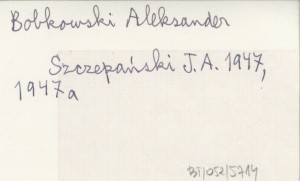 Bobkowski Aleksander
Szczepański J.A. 1947,
1947a
BJ/052/5714